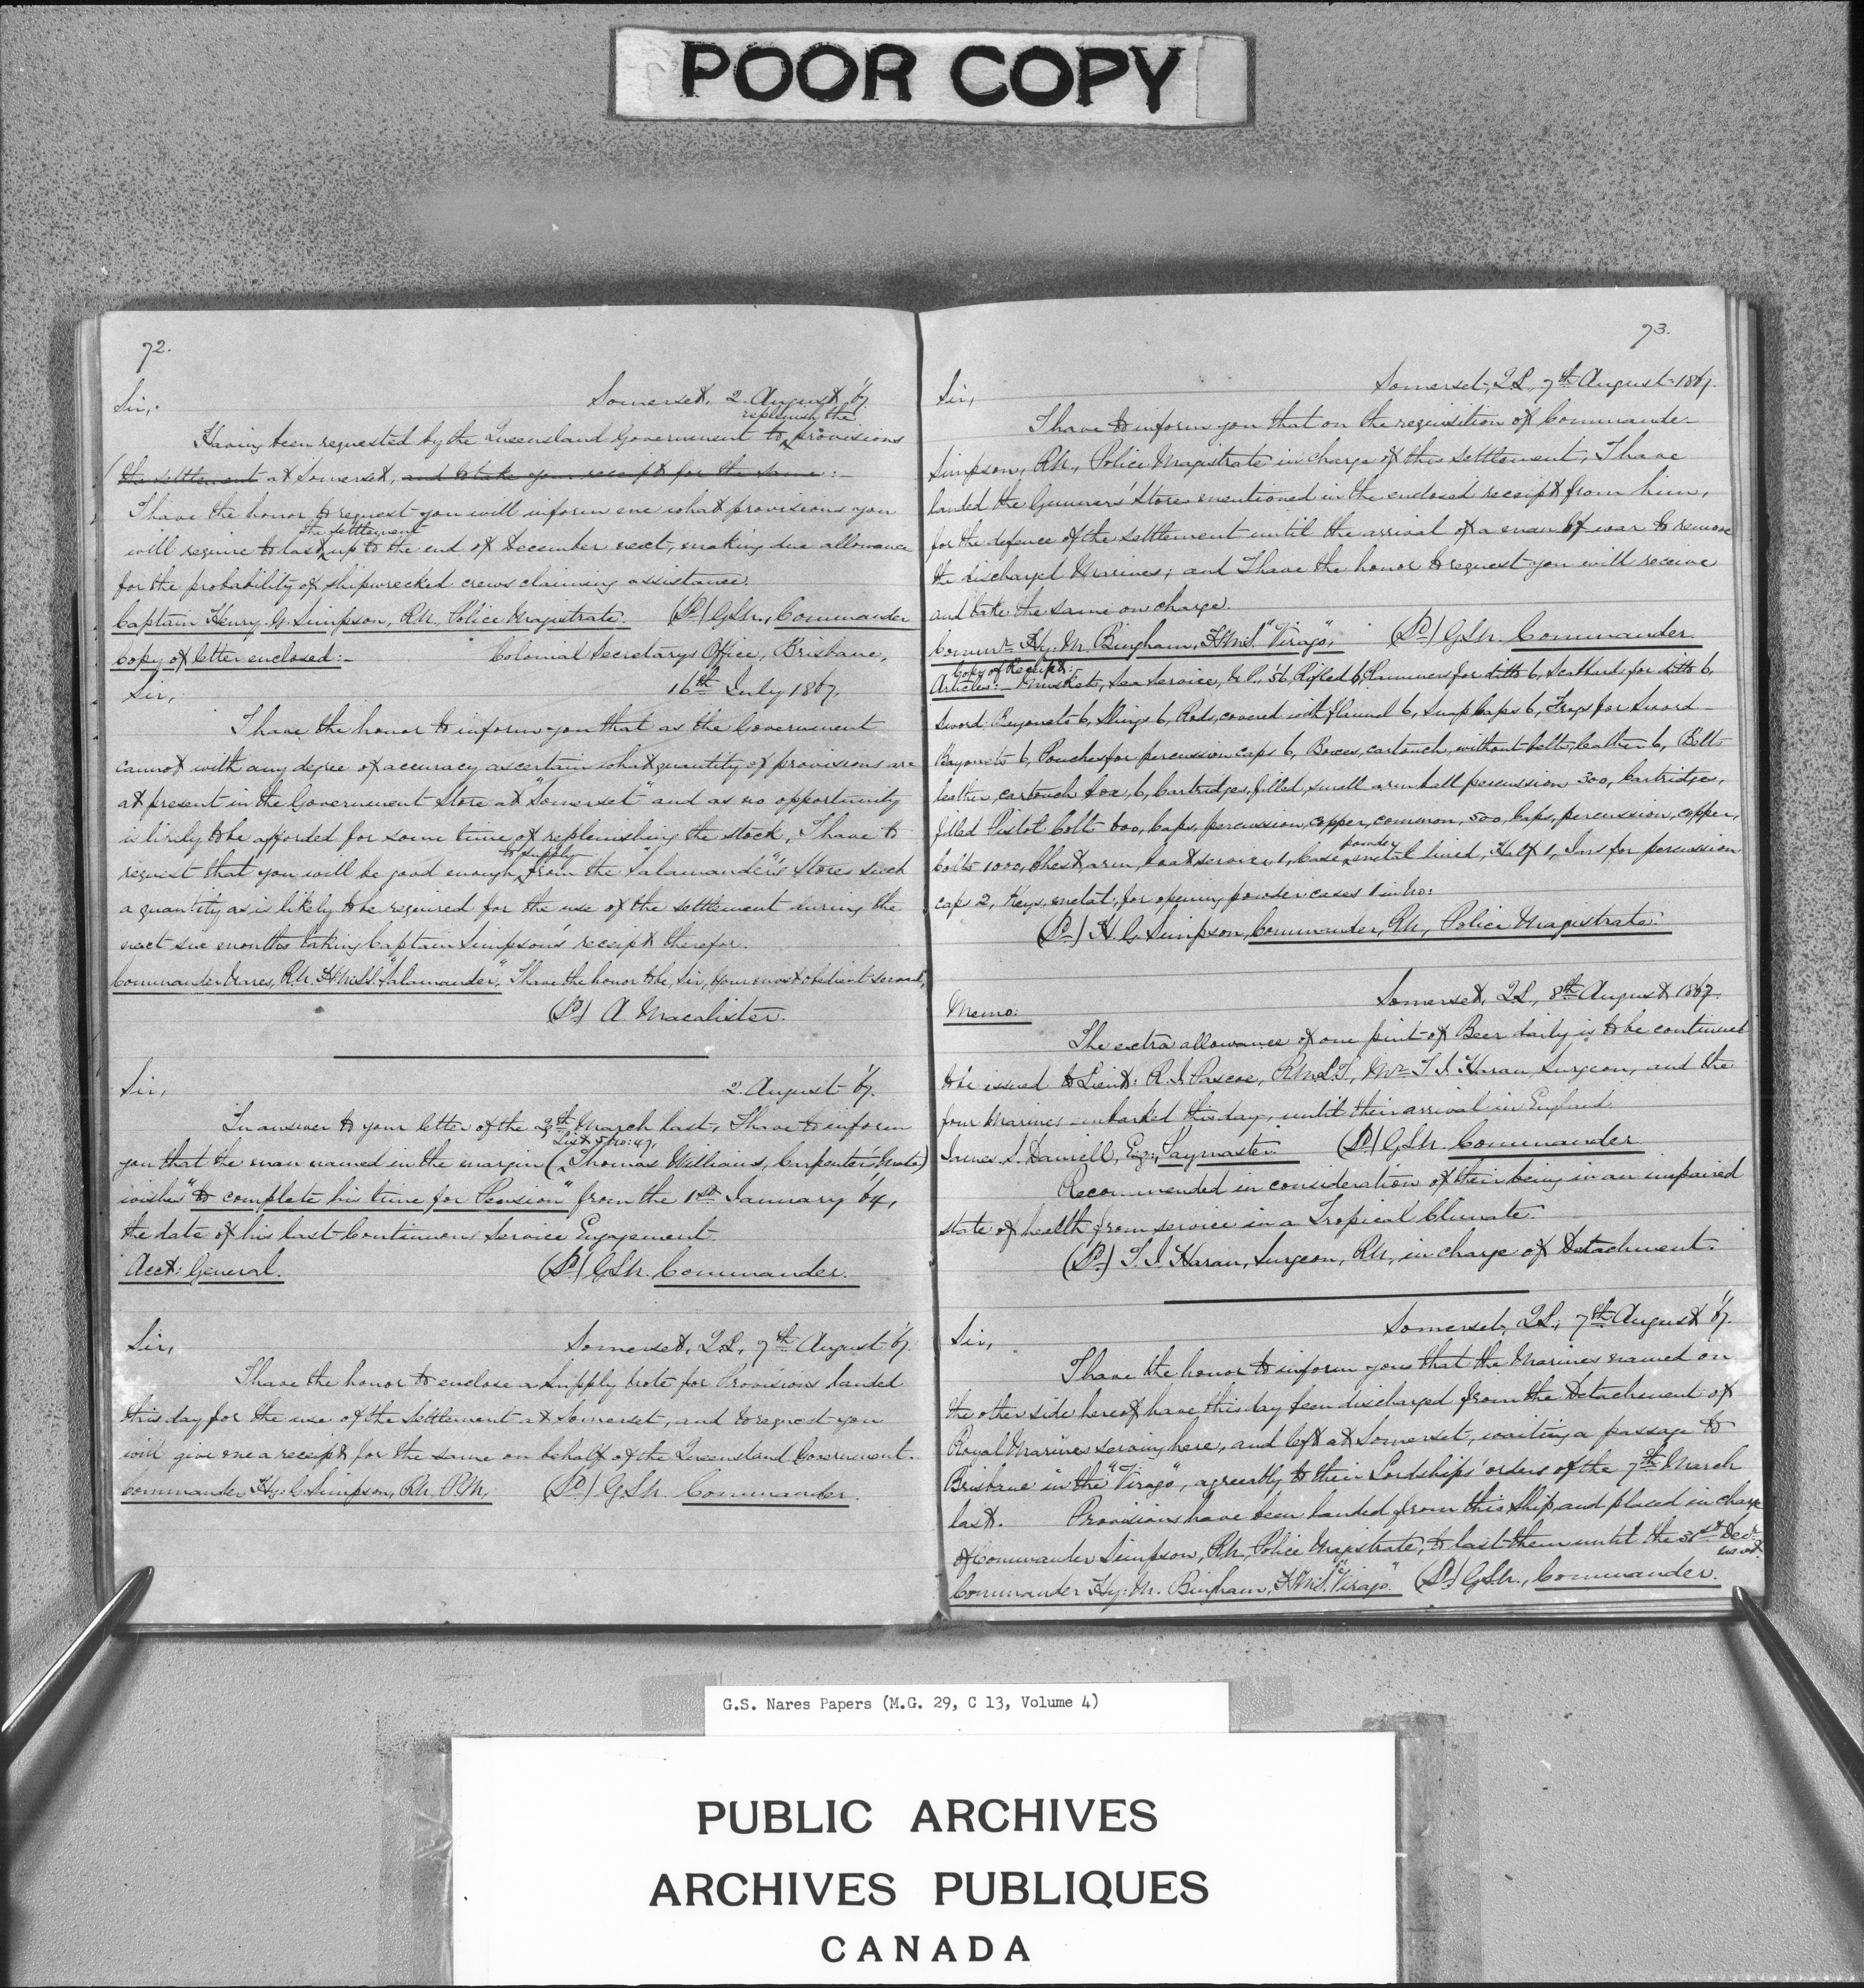 POOR COPY
72.
Somerset, 2. August '67.
Sir,
replenish the
Having been requested by the Queensland Government to provisions
the settlement at Somerset, and to take your receipt for the same:-
I have the honor to request you will inform me what provisions you
the settlement
will require to last up to the end of December next, making due allowance
for the probability of shipwrecked crews claiming assistance.
Captain Henry G. Simpson, R.N., Police Magistrate. (Sd) G.S.N., Commander
Copy of letter enclosed:- Colonial Secretary's Office, Brisbane,
Sir, 16th July 1867.
I have the honor to inform you that as the Government
cannot with any degree of accuracy ascertain what quantity of provisions are
at present in the Government Store at "Somerset" and as no opportunity
is likely to be afforded for some time of replenishing the stock, I have to
to supply
request that you will be good enough, from the "Salamander's" Stores such
a quantity as is likely to be required for the use of the settlement during the
next six months taking Captain Simpson's receipt therefor.
Commander Nares, R.N. H.M.S.S. "Salamander". I have the honor to be, Sir, Your most obedient servant,
(Sd) A. Macalister.
Sir, 2. August '67.
In answer to your letter of the March last, I have to inform
List 5 No: 47,
you that the man named in the margin (Thomas Williams, Carpenter's Mate)
wishes "to complete his time for Pension" from the 1st January '64,
the date of his last Continuous Service Engagement.
Acct: General. (Sd) G.S.N. Commander.
Sir, Somerset, Q.L., 7th August '67.
I have the honor to enclose a Supply Note for Provisions landed
this day for the use of the Settlement at Somerset, and to request you
will give me a receipt for the same on behalf of the Queensland Government.
Commander Hy: G. Simpson, R.N. P.M. (Sd) G.S.N. Commander.
73.
Somerset, Q.L., 7th August 1867.
Sir,
I have to inform you that on the requisition of Commander
Simpson, R.N., Police Magistrate in charge of this Settlement, I have
landed the Gunners' Stores mentioned in the enclosed receipt from him,
for the defence of the settlement until the arrival of a man of war to remove
the discharged Marines; and I have the honor to request you will receive
and take the same on charge.
Commr. Hy. M. Bingham, H.M.S. "Virago". (Sd) G.S.N. Commander.
Copy of Receipt:
Articles:- Muskets, Sea Service, '56, Rifled 6, for ditto 6, Scabbards for ditto 6,
Sword Bayonets 6, Slings 6, Rods, covered with flannel 6, Snap Caps 6, Frogs for Sword
Bayonets 6, Pouches for percussion caps 6, Boxes, cartouch, without belts, leather 6, Belts
leather, cartouch box, 6, Cartridges, filled, small arm ball percussion 300, Cartridges,
filled Pistol Colts 600, Caps, percussion, copper, common, 500, Caps, percussion, copper,
powder
Colts 1000, Chest, arm, boat service, 1, Case, metal lined, Half 1, Tins for percussion
caps 2, Keys, metal, for opening powder cases 1 in No:
(Sd) H. G. Simpson, Commander, R.N., Police Magistrate.
Somerset, Q.L., 8th August 1867.
Memo:
The extra allowance of one pint of Beer daily is to be continued
to be issued to Lieut: R. J. Pascoe, R.M.L.I., Mr. T. J. Haran, Surgeon, and the
four Marines embarked this day, until their arrival in England.
James S. Daniell, Esq:, Paymaster. (Sd) G.S.N. Commander
Recommended in consideration of their being in an impaired
state of health from service in a Tropical Climate.
(Sd) T. J. Haran, Surgeon, R.N., in charge of Detachment.
Somerset, Q.L., 7th August '67.
Sir,
I have the honor to inform you that the Marines named on
the other side hereof have this day been discharged from the Detachment of
Royal Marines serving here, and left at Somerset, waiting a passage to
Brisbane in the "Virago", agreeably to their Lordships' orders of the 7th March
last. Provisions have been landed from this Ship, and placed in charge
of Commander Simpson, R.N., Police Magistrate, to last them until the 31st Decr.
next.
Commander Hy: M. Bingham, H.M.S. "Virago." (Sd) G.S.N., Commander.
G.S. Nares Papers (M.G. 29, C 13, Volume 4)
PUBLIC ARCHIVES
ARCHIVES PUBLIQUES
CANADA